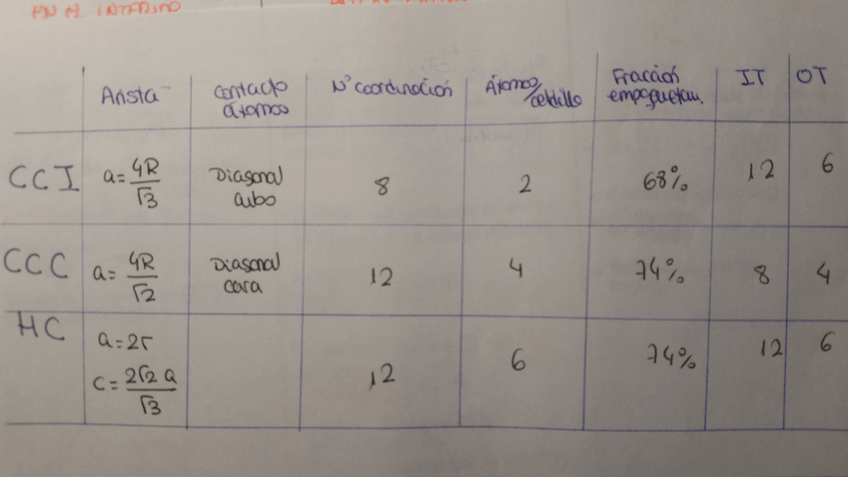 EN EL INTERIOR
Arista
contacto átomos
Nº coordinación
Átomos/celdilla
Fracción empaquetam.
IT
OT
CCI
a=4R/√3
Diagonal cubo
8
2
68%
12
6
CCC
a=4R/√2
Diagonal cara
12
4
74%
8
4
HC
a=2r
c=2√2 a/√3
12
6
74%
12
6